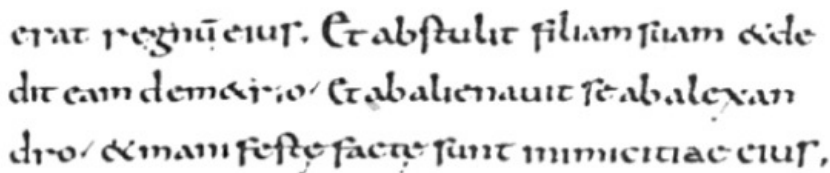 erat regnū eius. Et abstulit filiam suam &de
dit eam dem&rio, Et abalienauit se ab alexan
dro, & manifestę factę sunt inimicitiae eius,